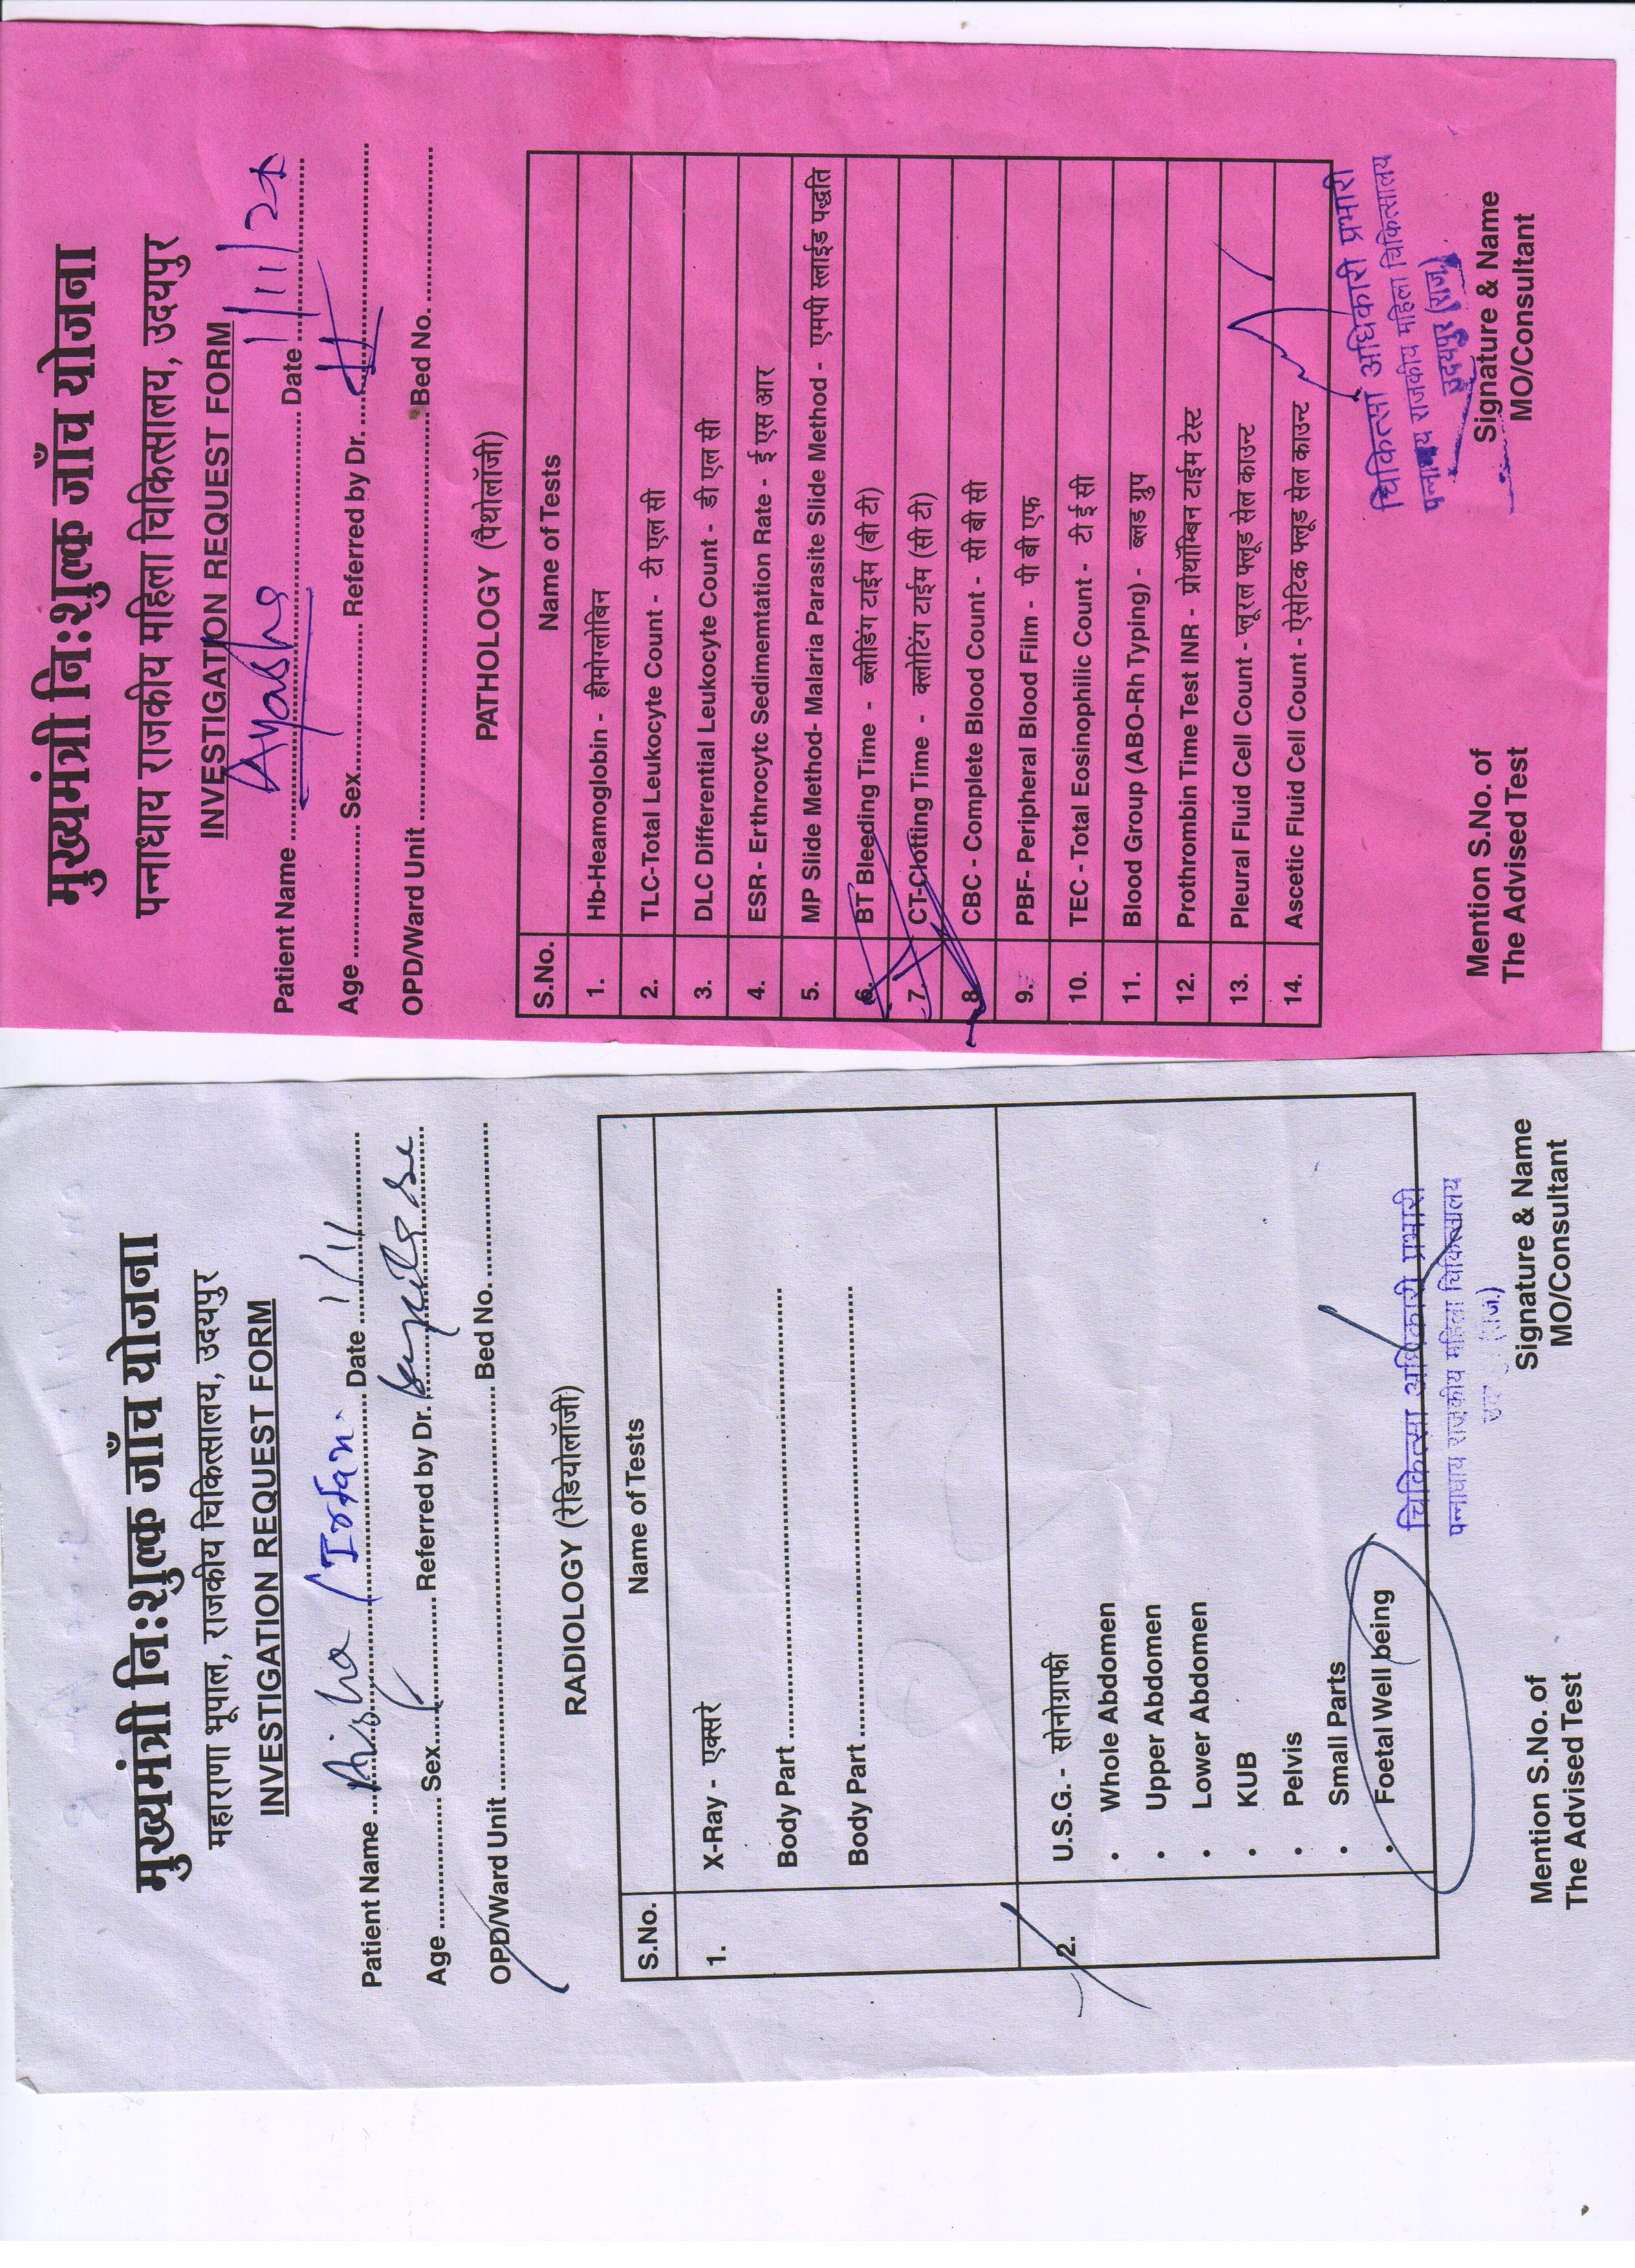 मुख्यमंत्री निःशुल्क जाँच योजना
पन्नाधाय राजकीय महिला चिकित्सालय, उदयपुर
INVESTIGATION REQUEST FORM
Patient Name Ayasha Date 1/11/20
Age Sex Referred by Dr.
OPD/Ward Unit Bed No.
PATHOLOGY (पैथोलॉजी)
S.No. Name of Tests
1. Hb-Heamoglobin - हीमोग्लोबिन
2. TLC-Total Leukocyte Count - टी एल सी
3. DLC Differential Leukocyte Count - डी एल सी
4. ESR - Erthrocytc Sedimemtation Rate - ई एस आर
5. MP Slide Method- Malaria Parasite Slide Method - एमपी स्लाईड पद्धति
6. BT Bleeding Time - ब्लीडिंग टाईम (बी टी)
7. CT-Clotting Time - क्लोटिंग टाईम (सी टी)
8. CBC - Complete Blood Count - सी बी सी
9. PBF- Peripheral Blood Film - पी बी एफ
10. TEC - Total Eosinophilic Count - टी ई सी
11. Blood Group (ABO-Rh Typing) - ब्लड ग्रुप
12. Prothrombin Time Test INR - प्रोथॉम्बिन टाईम टेस्ट
13. Pleural Fluid Cell Count - प्लूरल फ्लूड सेल काउन्ट
14. Ascetic Fluid Cell Count - ऐसेटिक फ्लूड सेल काउन्ट
चिकित्सा अधिकारी प्रभारी
पन्नाधाय राजकीय महिला चिकित्सालय
उदयपुर (राज.)
Mention S.No. of Signature & Name
The Advised Test MO/Consultant
मुख्यमंत्री निःशुल्क जाँच योजना
महाराणा भूपाल, राजकीय चिकित्सालय, उदयपुर
INVESTIGATION REQUEST FORM
Patient Name Aisha / Irfan. Date 1/11
Age Sex Referred by Dr.
OPD/Ward Unit Bed No.
RADIOLOGY (रेडियोलॉजी)
S.No. Name of Tests
1. X-Ray - एक्सरे
Body Part
Body Part
2. U.S.G. - सोनोग्राफी
• Whole Abdomen
• Upper Abdomen
• Lower Abdomen
• KUB
• Pelvis
• Small Parts
• Foetal Well being
चिकित्सा अधिकारी प्रभारी
पन्नाधाय राजकीय महिला चिकित्सालय
(राज.)
Mention S.No. of Signature & Name
The Advised Test MO/Consultant